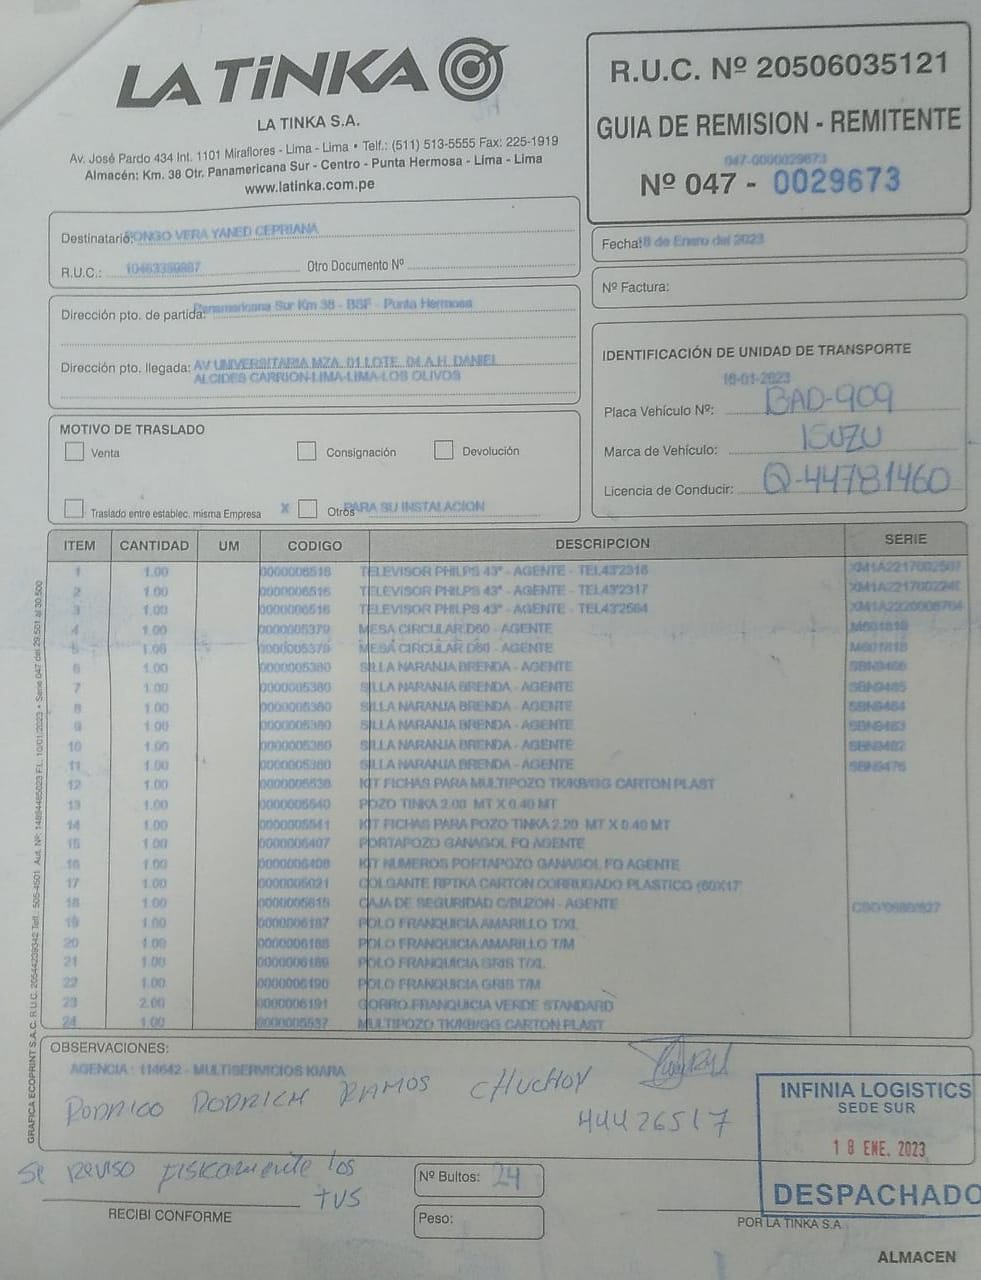 LA TiNKA
LA TINKA S.A.
Av. José Pardo 434 Int. 1101 Miraflores - Lima - Lima • Telf.: (511) 513-5555 Fax: 225-1919
Almacén: Km. 38 Otr. Panamericana Sur - Centro - Punta Hermosa - Lima - Lima
www.latinka.com.pe
R.U.C. Nº 20506035121
GUIA DE REMISION - REMITENTE
047-0000029673
Nº 047 - 0029673
Destinatario: RONGO VERA YANED CEPRIANA
R.U.C.: 10463359887 Otro Documento Nº
Fecha: 18 de Enero del 2023
Nº Factura:
Dirección pto. de partida: Panamericana Sur Km 38 - BSF - Punta Hermosa
Dirección pto. llegada: AV UNIVERSITARIA MZA. D1 LOTE. 04 A.H. DANIEL
ALCIDES CARRION-LIMA-LIMA-LOS OLIVOS
IDENTIFICACIÓN DE UNIDAD DE TRANSPORTE
18-01-2023
Placa Vehículo Nº: BAD-909
Marca de Vehículo: ISUZU
Licencia de Conducir: Q-44781460
MOTIVO DE TRASLADO
Venta Consignación Devolución
Traslado entre establec. misma Empresa X Otros PARA SU INSTALACION
ITEM CANTIDAD UM CODIGO DESCRIPCION SERIE
1 1.00 0000006516 TELEVISOR PHILPS 43" - AGENTE - TEL432316
2 1.00 0000006516 TELEVISOR PHILPS 43" - AGENTE - TEL432317
3 1.00 0000006516 TELEVISOR PHILPS 43" - AGENTE - TEL432564
4 1.00 0000005379 MESA CIRCULAR D60 - AGENTE
5 1.00 0000005379 MESA CIRCULAR D60 - AGENTE
6 1.00 0000005380 SILLA NARANJA BRENDA - AGENTE SBN9466
7 1.00 0000005380 SILLA NARANJA BRENDA - AGENTE SBN9465
8 1.00 0000005380 SILLA NARANJA BRENDA - AGENTE SBN9464
9 1.00 0000005380 SILLA NARANJA BRENDA - AGENTE SBN9463
10 1.00 0000005380 SILLA NARANJA BRENDA - AGENTE SBN9462
11 1.00 0000005380 SILLA NARANJA BRENDA - AGENTE SBN9476
12 1.00 0000005538 KIT FICHAS PARA MULTIPOZO TK/KB/GG CARTON PLAST
13 1.00 0000005540 POZO TINKA 2.00 MT X 0.40 MT
14 1.00 0000005541 KIT FICHAS PARA POZO TINKA 2.20 MT X 0.40 MT
15 1.00 0000005407 PORTAPOZO GANAGOL FQ AGENTE
16 1.00 0000005408 KIT NUMEROS PORTAPOZO GANAGOL FQ AGENTE
17 1.00 0000005021 COLGANTE RPTKA CARTON CORRUGADO PLASTICO (60X17
18 1.00 0000005615 CAJA DE SEGURIDAD C/BUZON - AGENTE
19 1.00 0000006187 POLO FRANQUICIA AMARILLO T/XL
20 1.00 0000006188 POLO FRANQUICIA AMARILLO T/M
21 1.00 0000006189 POLO FRANQUICIA GRIS T/XL
22 1.00 0000006190 POLO FRANQUICIA GRIS T/M
23 2.00 0000006191 GORRO FRANQUICIA VERDE STANDARD
24 1.00 0000005537 MULTIPOZO TK/KB/GG CARTON PLAST
OBSERVACIONES:
AGENCIA : 114642 - MULTISERVICIOS KIARA
RODRIGO RODRICH RAMOS CHUCHOY
44426517
Se reviso fisicamente los
TVS
RECIBI CONFORME
Nº Bultos: 24
Peso:
INFINIA LOGISTICS
SEDE SUR
18 ENE. 2023
DESPACHADO
POR LA TINKA S.A.
ALMACEN